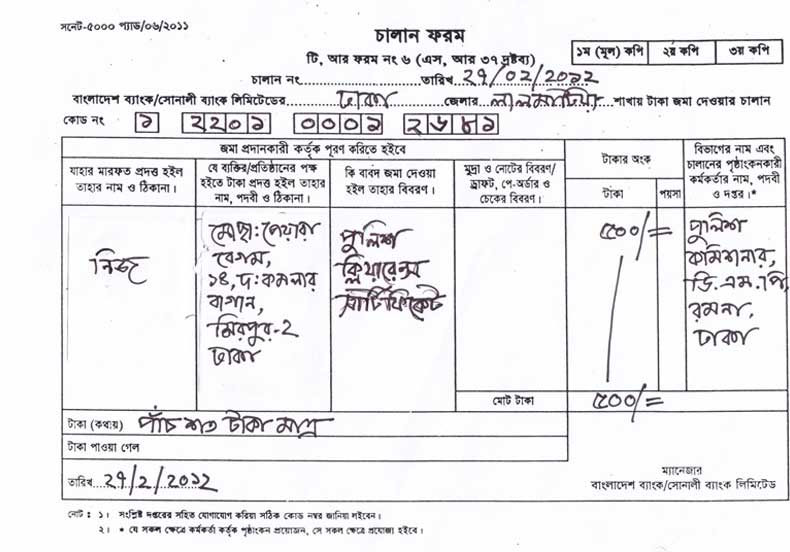 সনেট-৫০০০ প্যাড/০৬/২০১১
চালান ফরম
টি, আর ফরম নং ৬ (এস, আর ৩৭ দ্রষ্টব্য)
১ম (মূল) কপি ২য় কপি ৩য় কপি
চালান নং..............................তারিখ 27/02/২০১২
বাংলাদেশ ব্যাংক/সোনালী ব্যাংক লিমিটেডের............ঢাকা............জেলার...লালমাটিয়া...শাখায় টাকা জমা দেওয়ার চালান
কোড নং ১ ২২০১ ০০০১ ২৬৮১
জমা প্রদানকারী কর্তৃক পূরণ করিতে হইবে
যাহার মারফত প্রদত্ত হইল তাহার নাম ও ঠিকানা।
যে ব্যক্তির/প্রতিষ্ঠানের পক্ষ হইতে টাকা প্রদত্ত হইল তাহার নাম, পদবী ও ঠিকানা।
কি বাবদ জমা দেওয়া হইল তাহার বিবরণ।
মুদ্রা ও নোটের বিবরণ/ ড্রাফট, পে-অর্ডার ও চেকের বিবরণ।
টাকার অংক
টাকা পয়সা
বিভাগের নাম এবং চালানের পৃষ্ঠাংকনকারী কর্মকর্তার নাম, পদবী ও দপ্তর।*
নিজ
মোছা: পেয়ারা
বেগম,
১৪, দ: কমলার
বাগান,
মিরপুর-২
ঢাকা
পুলিশ
ক্লিয়ারেন্স
সার্টিফিকেট
৫০০/=
পুলিশ
কমিশনার,
ডি.এম.পি,
রমনা,
ঢাকা
মোট টাকা ৫০০/=
টাকা (কথায়) পাঁচ শত টাকা মাত্র
টাকা পাওয়া গেল
তারিখ...27/2/২০১২
ম্যানেজার
বাংলাদেশ ব্যাংক/সোনালী ব্যাংক লিমিটেড
নোট : ১। সংশ্লিষ্ট দপ্তরের সহিত যোগাযোগ করিয়া সঠিক কোড নম্বর জানিয়া লইবেন।
২। * যে সকল ক্ষেত্রে কর্মকর্তা কর্তৃক পৃষ্ঠাংকন প্রয়োজন, সে সকল ক্ষেত্রে প্রযোজ্য হইবে।